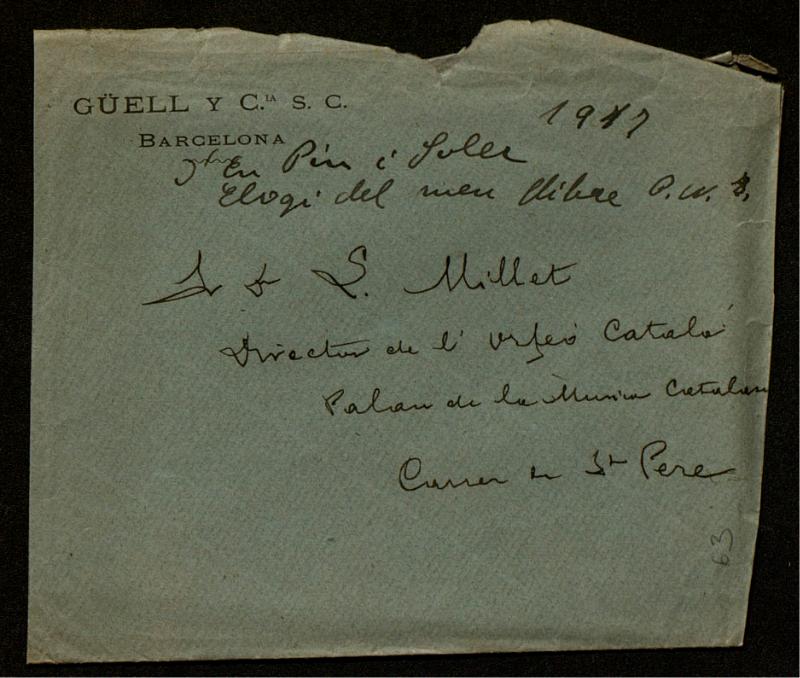 GÜELL Y C.IA S. C.
BARCELONA
1917
En Pin i Soler
Elogi del meu llibre P. N. S.
Sr D L. Millet
Director de l' Orfeó Català
Palau de la Musica Catalana
Carrer de St Pere
63